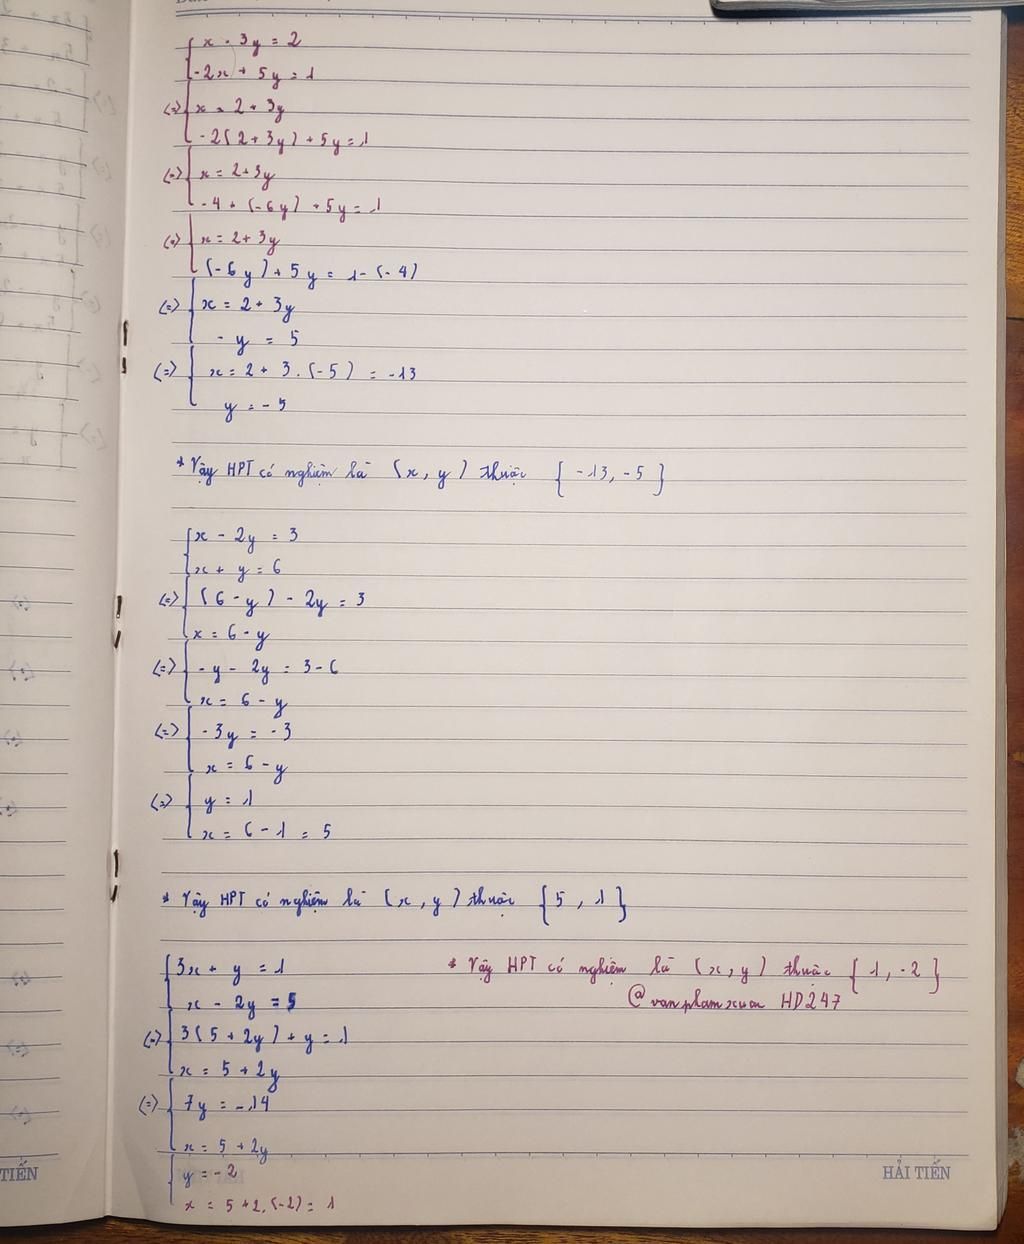 x - 3y = 2
-2x + 5y = 1
(=) x = 2 + 3y
-2(2 + 3y) + 5y = 1
(=) x = 2 + 3y
-4 + (-6y) + 5y = 1
(=) x = 2 + 3y
(-6y) + 5y = 1 - (-4)
(=) x = 2 + 3y
-y = 5
(=) x = 2 + 3.(-5) = -13
y = -5
* Vậy HPT có nghiệm là (x, y) thuộc {-13, -5}
x - 2y = 3
x + y = 6
(=) (6 - y) - 2y = 3
x = 6 - y
(=) -y - 2y = 3 - 6
x = 6 - y
(=) -3y = -3
x = 6 - y
(=) y = 1
x = 6 - 1 = 5
* Vậy HPT có nghiệm là (x, y) thuộc {5, 1}
3x + y = 1
x - 2y = 5
(=) 3(5 + 2y) + y = 1
x = 5 + 2y
(=) 7y = -14
x = 5 + 2y
y = -2
x = 5 + 2.(-2) = 1
* Vậy HPT có nghiệm là (x, y) thuộc {1, -2}
HD247
TIẾN
HẢI TIẾN